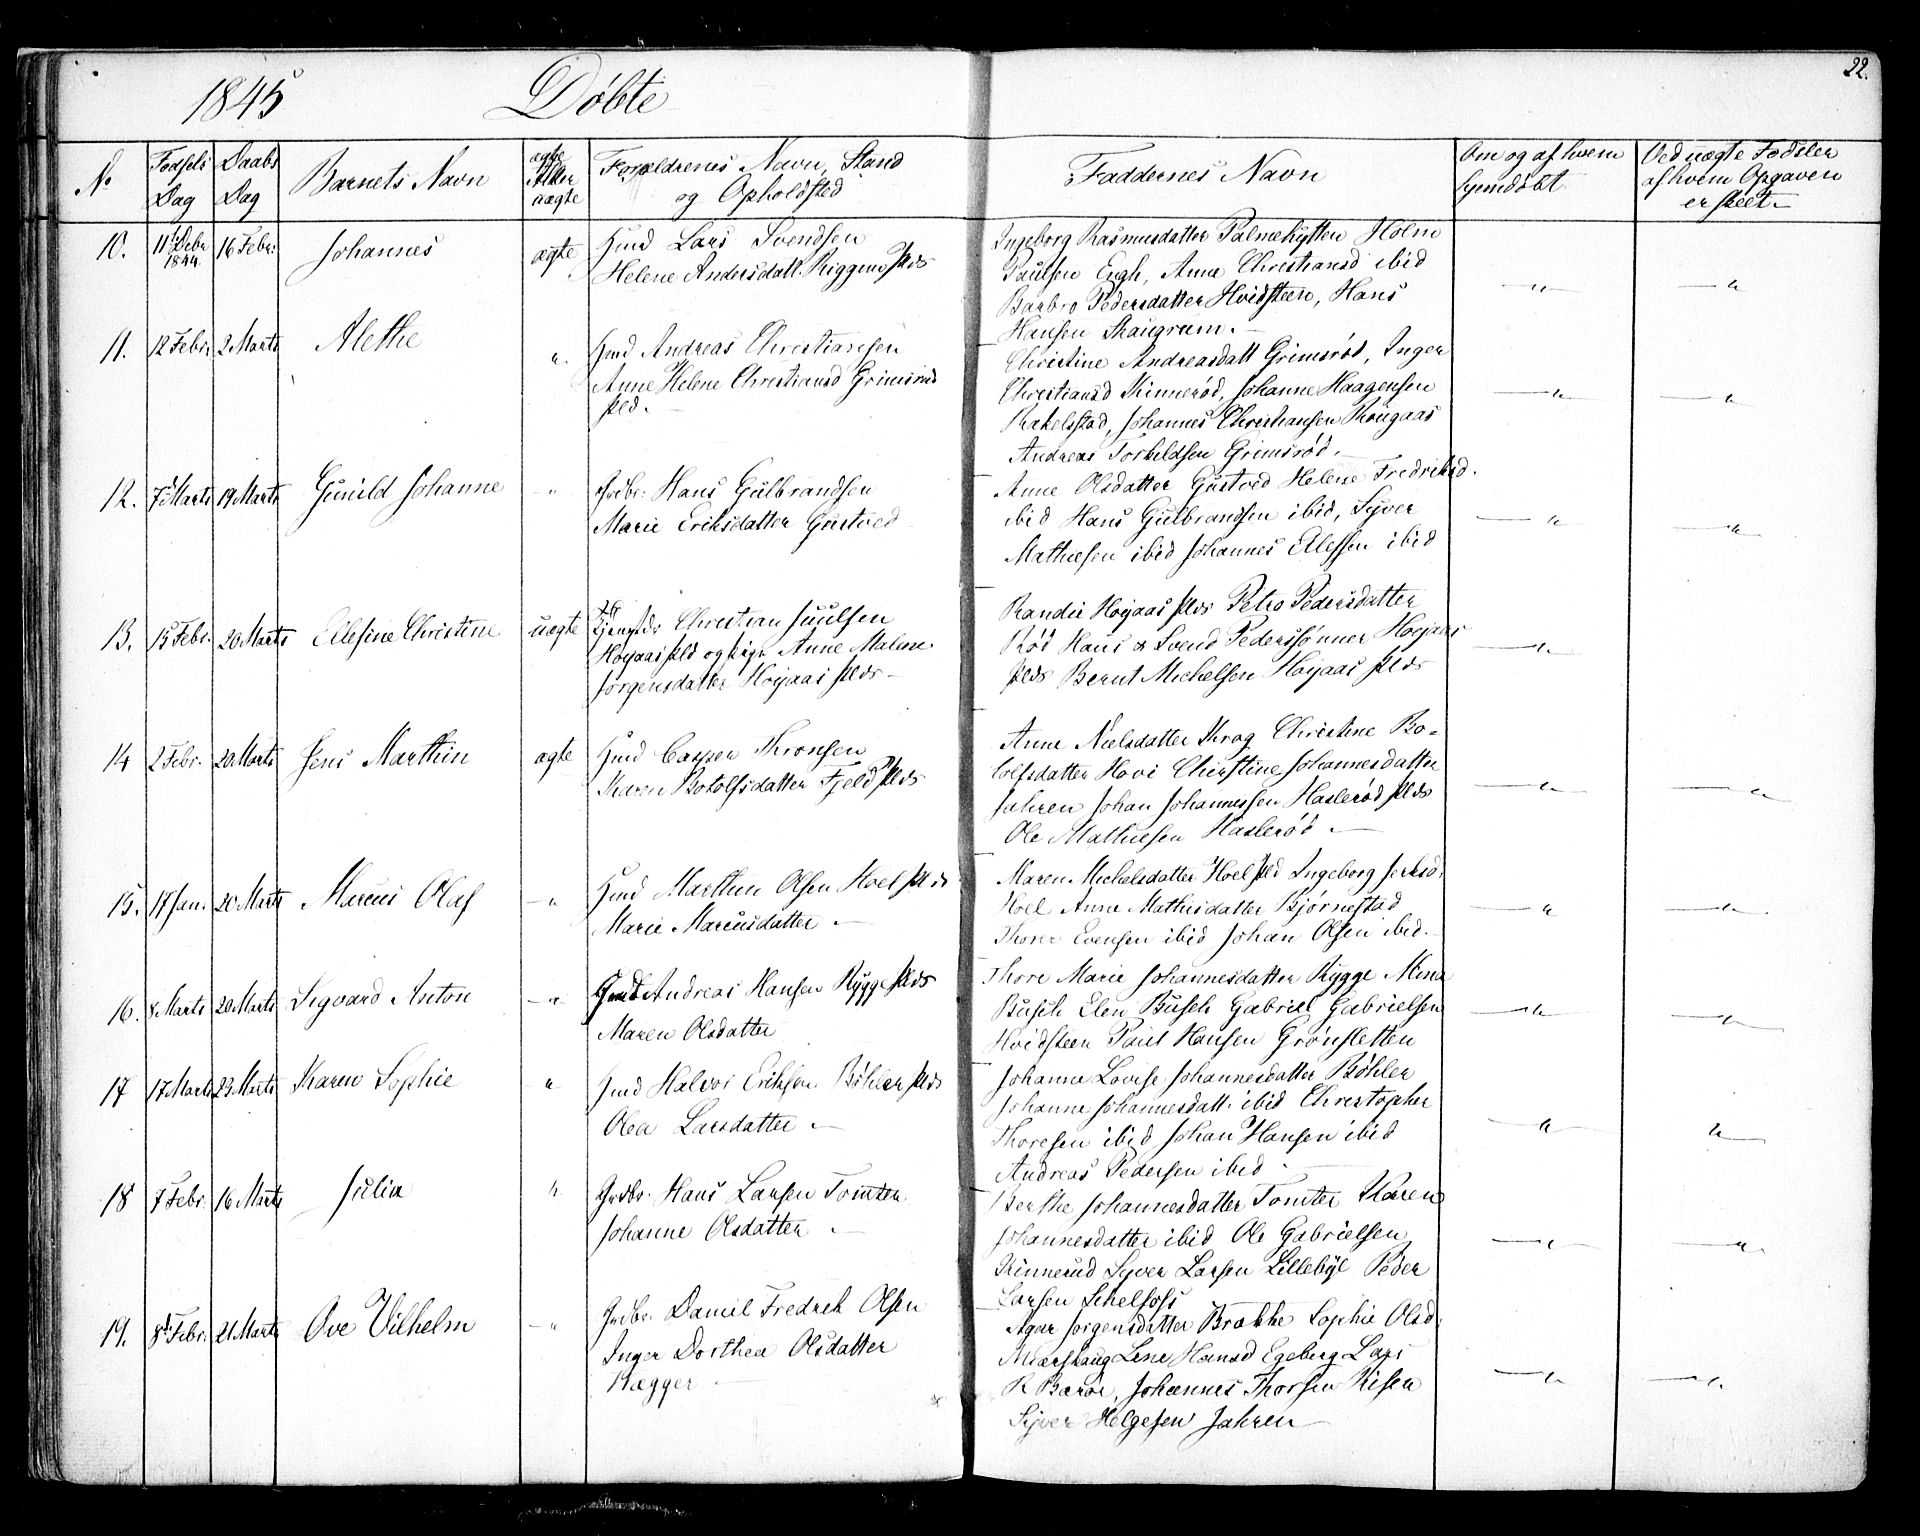 22.
1845 Døbte
No Fødsels Dag Daabs Dag Barnets Navn ægte eller uægte Forældrenes Navn, Stand og Opholdsted Faddernes Navn Om og af hvem hjemdøbt Ved uægte Fødsler af hvem Opgaven er skeet
10. 11 Debr 1844 16 Febr: Johannes ægte Hmd Lars Svendsen
Helene Andersdatt. Riggene Plds
Ingeborg Rasmusdatter Palmehytten Holm
Paulsen Engh, Anne Christiansd ibid
Barbro Pedersdatter Hvidsteen, Hans
Hansen Skaugrum.
11. 12 Febr. 2 Marts Alethe " Hmd Andreas Christiansen
Anne Helene Christiansd Grimsrød
Pld.
Christine Andreasdatt Grimsrød, Inger
Christiansd Kinnerød, Johanne Haagensen
Rakelstad, Johannes Christiansen Krougaas
Andreas Torkildsen Grimsrød.
12. 7 Marts 19 Marts Gunild Johanne " Grdbr. Hans Gulbrandsen
Marie Eriksdatter Gustved
Anne Olsdatter Gustved Helene Fredriksd.
ibid Hans Gulbrandsen ibid, Syver
Mathiesen ibid Johannes Ellefsen ibid
13. 15 Febr. 20 Marts Ellefine Christine uægte Christian Juulsen
Høyaas Pld og Pige Anne Malene
Jørgensdatter Høyaas Plds
Randie Høyaas Plds Petro Pedersdatter
Rød Hans & Svend Pederssønner Høyaas
Plds Bernt Michelsen Høyaas Plds
14 2 Febr. 20 Marts Jens Marthin ægte Hmd Casper Thronsen
Karen Botolfsdatter Fjeld Plds
Anne Nielsdatter Krog Christine Bo-
tolfsdatter Hovi Christine Johannesdatter
Jahren Johan Johannessen Haslerød Plds
Ole Mathiesen Haslerød.
15. 17 Jan. 20 Marts Marcus Olaf " Hmd Marthin Olsen Hoel Plds
Marie Marcusdatter
Maren Michelsdatter Hoel Pld Ingeborg
Hoel Anne Mathisdatter Bjørnestad
Thorer Evensen ibid Johan Olsen ibid.
16. 8 Marts 20 Marts Sigvard Anton " Andreas Hansen Rygge Plds
Maren Olsdatter
Thore Marie Johannesdatter Rygge Mina
Busch Elen Busch Gabriel Gabrielsen
Hvidsteen Paul Hansen Grønsletten
17 17 Marts 23 Marts Karen Sophie " Hmd Halvor Eriksen Bøhler Plds
Olea Larsdatter
Johanne Lovise Johannesdatter Bøhler
Johanne Johannesdatt. ibid Christopher
Thoresen ibid Johan Hansen ibid
Andreas Pedersen ibid
18 7 Febr. 16 Marts Julia " Grdbr. Hans Larsen Tomter
Johanne Olsdatter
Berthe Johannesdatter Tomter Karen
Johannesdatter ibid Ole Gabrielsen
Kinnerud Syver Larsen Lillebyl Peder
Larsen Schelfoss
19. 8 Febr. 21 Marts Ove Vilhelm " Grdbr. Daniel Fredrek Olsen
Inger Dorthea Olsdatter
Hægger
Agar Jørgensdatter Brække Sophie Olsd.
Mærskaug Lene Hansd Egeberg Lars
R Barør, Johannes Thorsen Risen
Syver Helgesen Jahren